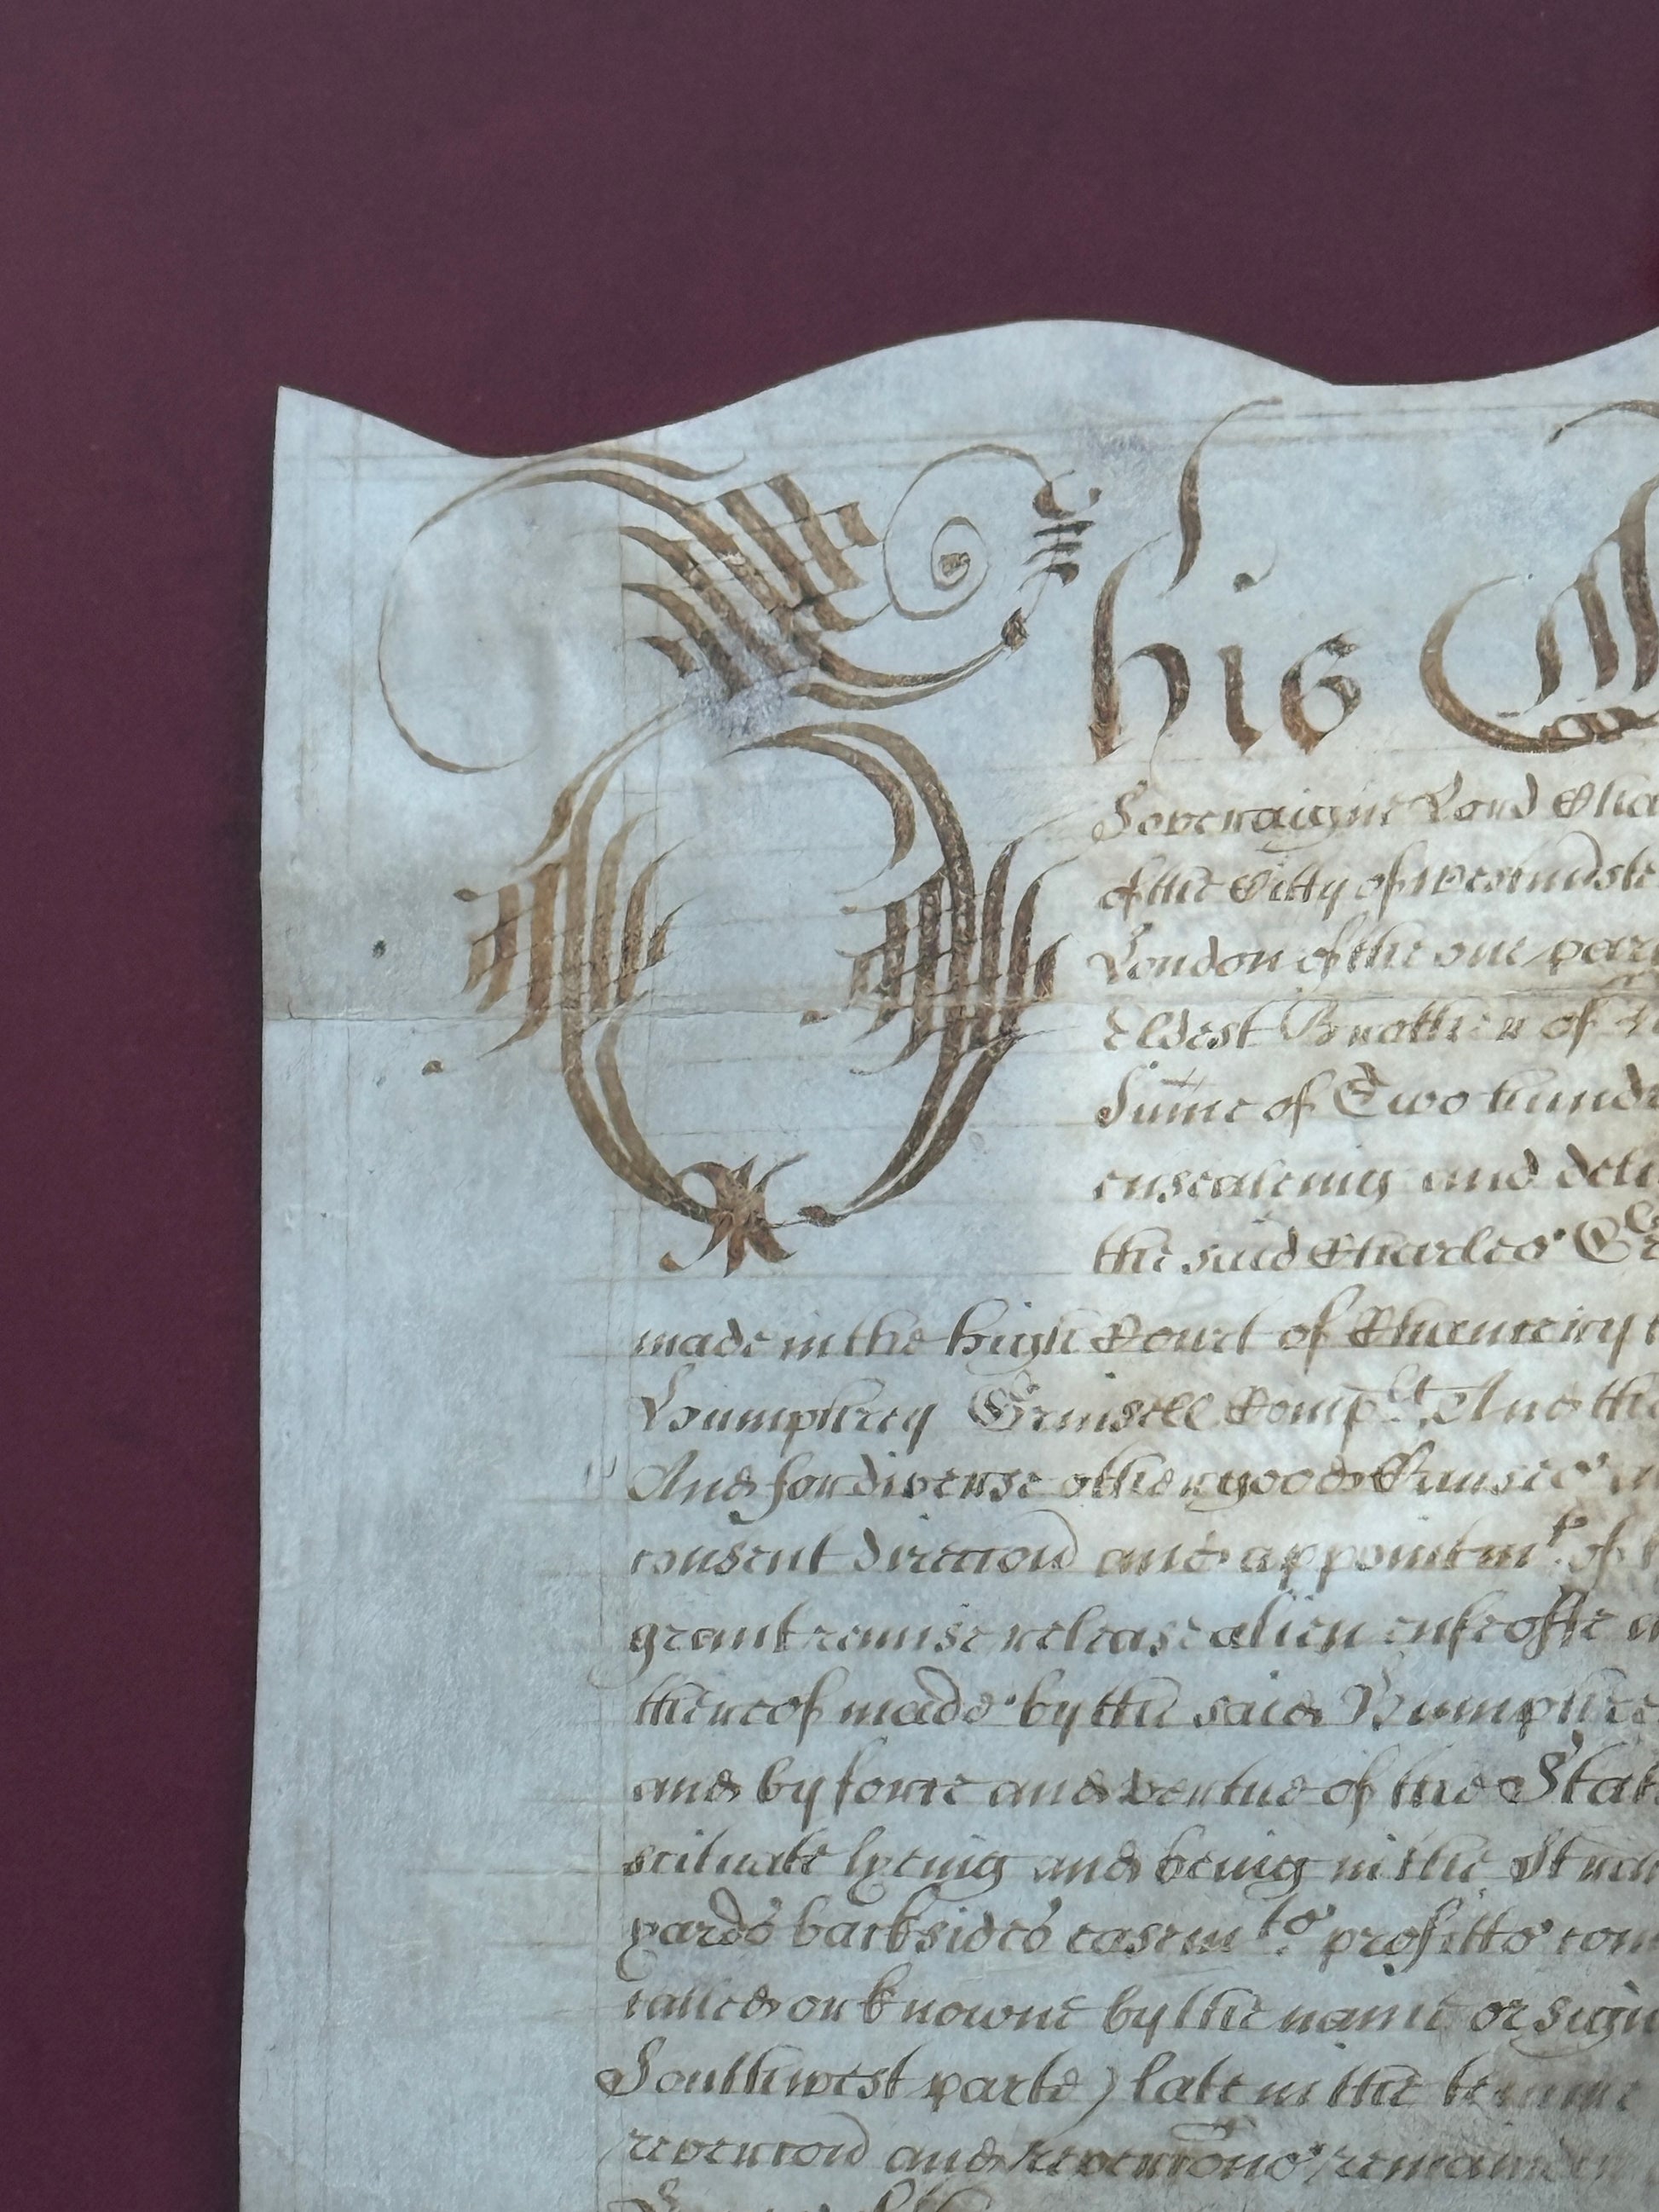 This
Soveraigne Lord Cha
of the Citty of Westminste
London of the one par
Eldest Brother of
Sum̄e of Two hundr
ensealeing and deli
the said Charles
made in the high Court of Chauncery
Humphrey Grinsell Compᶫᵗ And the
And for diverse other good Causes
consent direccon and appointmᵗ. of
grant remise release alien enfeoffe
thereof made by the said Humphre
and by force and vertue of the Stat
scituate lyeing and being in the Stran
yards backsides easemᵗˢ. profitts com
called or knowne by the name or signe
Southwest parte) late in the tenure
revercon and revercons remainder